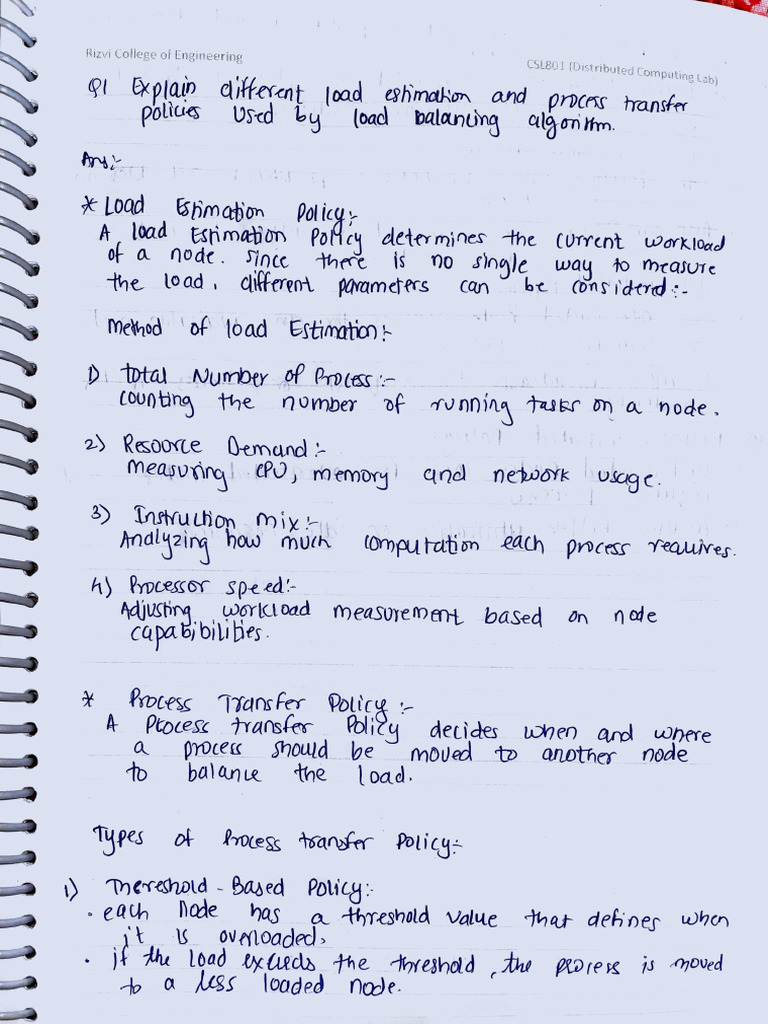 Rizvi College of Engineering
CSL801 (Distributed Computing Lab)
Q1 Explain different load estimation and process transfer
policies used by load balancing algorithm.
Ans:-
* Load Estimation Policy:-
A load Estimation Policy determines the current workload
of a node. since there is no single way to measure
the load, different parameters can be considered:-
Method of load Estimation:-
1) Total Number of Process:-
counting the number of running tasks on a node.
2) Resource Demand:-
measuring CPU, memory and network usage.
3) Instruction mix:-
Analyzing how much computation each process requires.
4) Processor speed:-
Adjusting workload measurement based on node
capabibilities.
* Process Transfer Policy:-
A Process transfer Policy decides when and where
a process should be moved to another node
to balance the load.
Types of Process transfer Policy:-
1) Thereshold-Based Policy:-
• each Node has a threshold value that defines when
it is overloaded.
• if the load exceeds the threshold, the process is moved
to a less loaded node.